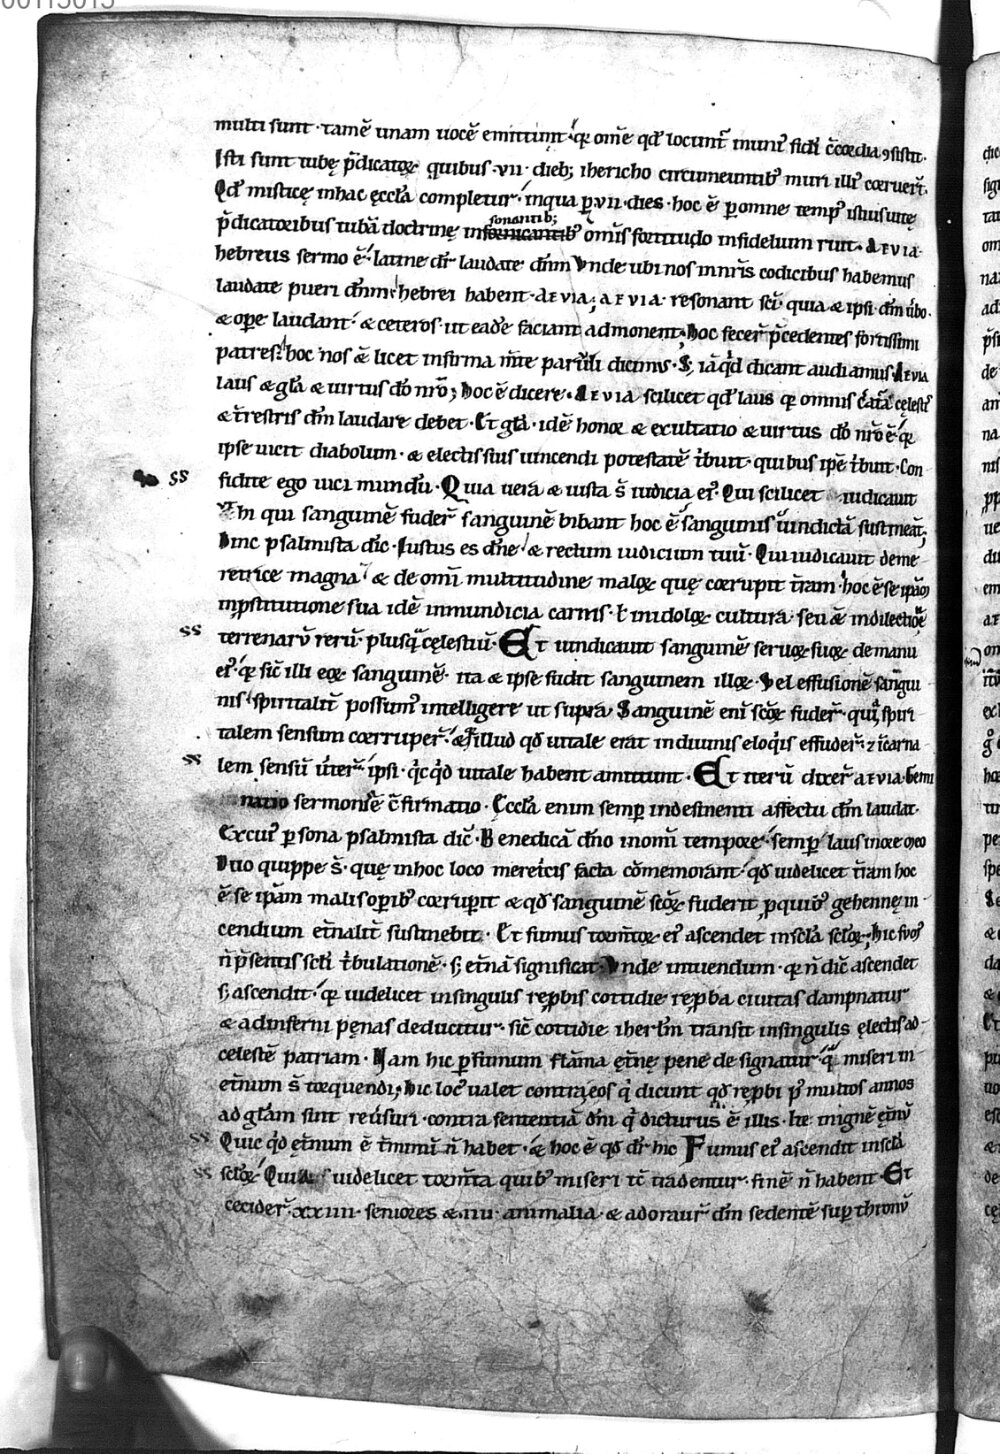 multi sunt · tamē unam uocē emittunt · qꝛ om̄e qd̓ locunt᷑ muniꝰ fidei c̄cordia ꝯsistit.
Isti sunt tubę p̄dicatoꝝ quibus · vii · dieb; ihericho circumeuntibꝰ muri illiꝰ corruer̄t.
Qd̓ misticę in hac ęccl̓a completur · in qua ꝑ · vii · dies · hoc ē ꝑ omne tempꝰ istius uitę
p̄dicatoribus tubā doctrinę in sonantib; om̄is fortitudo infidelium ruit · aeuia ·
hebreus sermo ē · latine dr̄ laudate dn̄m Vnde ubi nos in nr̄is codicibus habemus
laudate pueri dn̄m · hebrei habent · aeuia; aeuia · resonant sc̄i · quia & ipsi dn̄m ūbo ·
& oꝑe laudant · & ceteros · ut eadē faciant admonent; hoc fecer̄ p̄cedentes fortissimi
patres · hoc nos & licet infirma dicimus · S; dicant audiamus · Aeuia
laus & gl̓a & uirtus dō nr̄o; hoc ē dicere · Aeuia scilicet qd̓ laus qꝛ omnis cęlestꝭ
& t̄restris dn̄m laudare debet · Et gl̓a · idē honor & exultatio & uirtus dō nr̄o ē · qꝛ
ipse uicit diabolum · & electis suis uincendi potestatē t̓buit · quibus ip̄e t̓buit · Con
fidite ego uici mundū · Quia uera & iusta s̄ iudicia eiꝰ · Qui scilicet iudicauit
Vt hi qui sanguinē fuder̄ sanguinē bibant hoc ē sanguinis uindictā sustineāt;
Hinc psalmista dic̄ · Iustus es dn̄e & rectum iudicium tuū · Qui iudicauit de me
retrice magna & de om̄i multitudine maloꝝ quę corrupit t̄ram · hoc ē se ipā
in ꝓstitutione sua idē inmundicia carnis · ł in idoloꝝ cultura · seu & in dilectiōe
terrenarū rerū · plusq̄ cęlestiū · Et uindicauit sanguinē seruoꝝ suoꝝ de manu
eiꝰ · qꝛ sic̄ illi eoꝝ sanguinē · ita & ipse fudit sanguinem illoꝝ · Vel effusionē sangui
nis spiritalit̄ possumꝰ intelligere ut supra · Sanguinē eni sc̄oꝝ fuder̄ · qui spiri
talem sensum corruper̄ · & illud qd̓ uitale erat in diuinis eloq̓is effuder̄ · & carna
lem sensū ipsi · q̓cq̓d uitale habent amittunt · Et iterū dixer̄ aeuia · Gemi
natio sermonis ē c̄firmatio · Eccl̓a enim semꝑ indesinenti affectu dn̄m laudat ·
Ex cuiꝰ ꝑsona psalmista dic̄ · Benedicā dn̄o in om̄i tempore · semꝑ laus in ore meo
Duo quippe s̄ · quę in hoc loco meretricis facta cōmemorant · qd̓ uidelicet t̄ram hoc
ē se ipām malis oꝑibꝰ corrupit & qd̓ sanguinē sc̄oꝝ fuderit ꝓ quibꝰ gehennę in
cendium et̄nalit̄ sustinebit · Et fumus tormtoꝝ eiꝰ ascendet in scl̓a scl̓oꝝ; hic
n̄ p̄sentis scl̓i t̓bulationē · s; et̄nā significat · Vnde intuendum · qꝛ n̄ dic̄ ascendet
s; ascendit · qꝛ uidelicet in singulis reꝓbis cottidie reꝓba ciuitas dampnatur
& ad inferni pęnas deducitur · sic̄ cottidie iherl̓m transit in singulis ęlectis ad
celestē patriam · Nam hic ꝑ fumum flāma ęt̄nę penę designatur miseri in
et̄num s̄ torquendi; hic locꝰ ualet contra eos q̓ dicunt qd̓ reꝓbi pꝰ multos annos
ad gl̓am sint reūsuri · contra sententiā dn̄i q̓ dicturus ē illis · Ite in ignē et̄nū
Quic q̓d ęt̄num ē t̄minū n̄ habet · & hoc ē qd̓ dr̄ hic Fumus eiꝰ ascendit in scl̓a
scl̓oꝝ · Quia uidelicet torm̄ta quibꝰ miseri tc̄ tradentur · finē n̄ habent · Et
cecider̄ · xxiiii · seniores & iiii · animalia · & adorauer̄ dn̄m sedentē suꝑ thronū